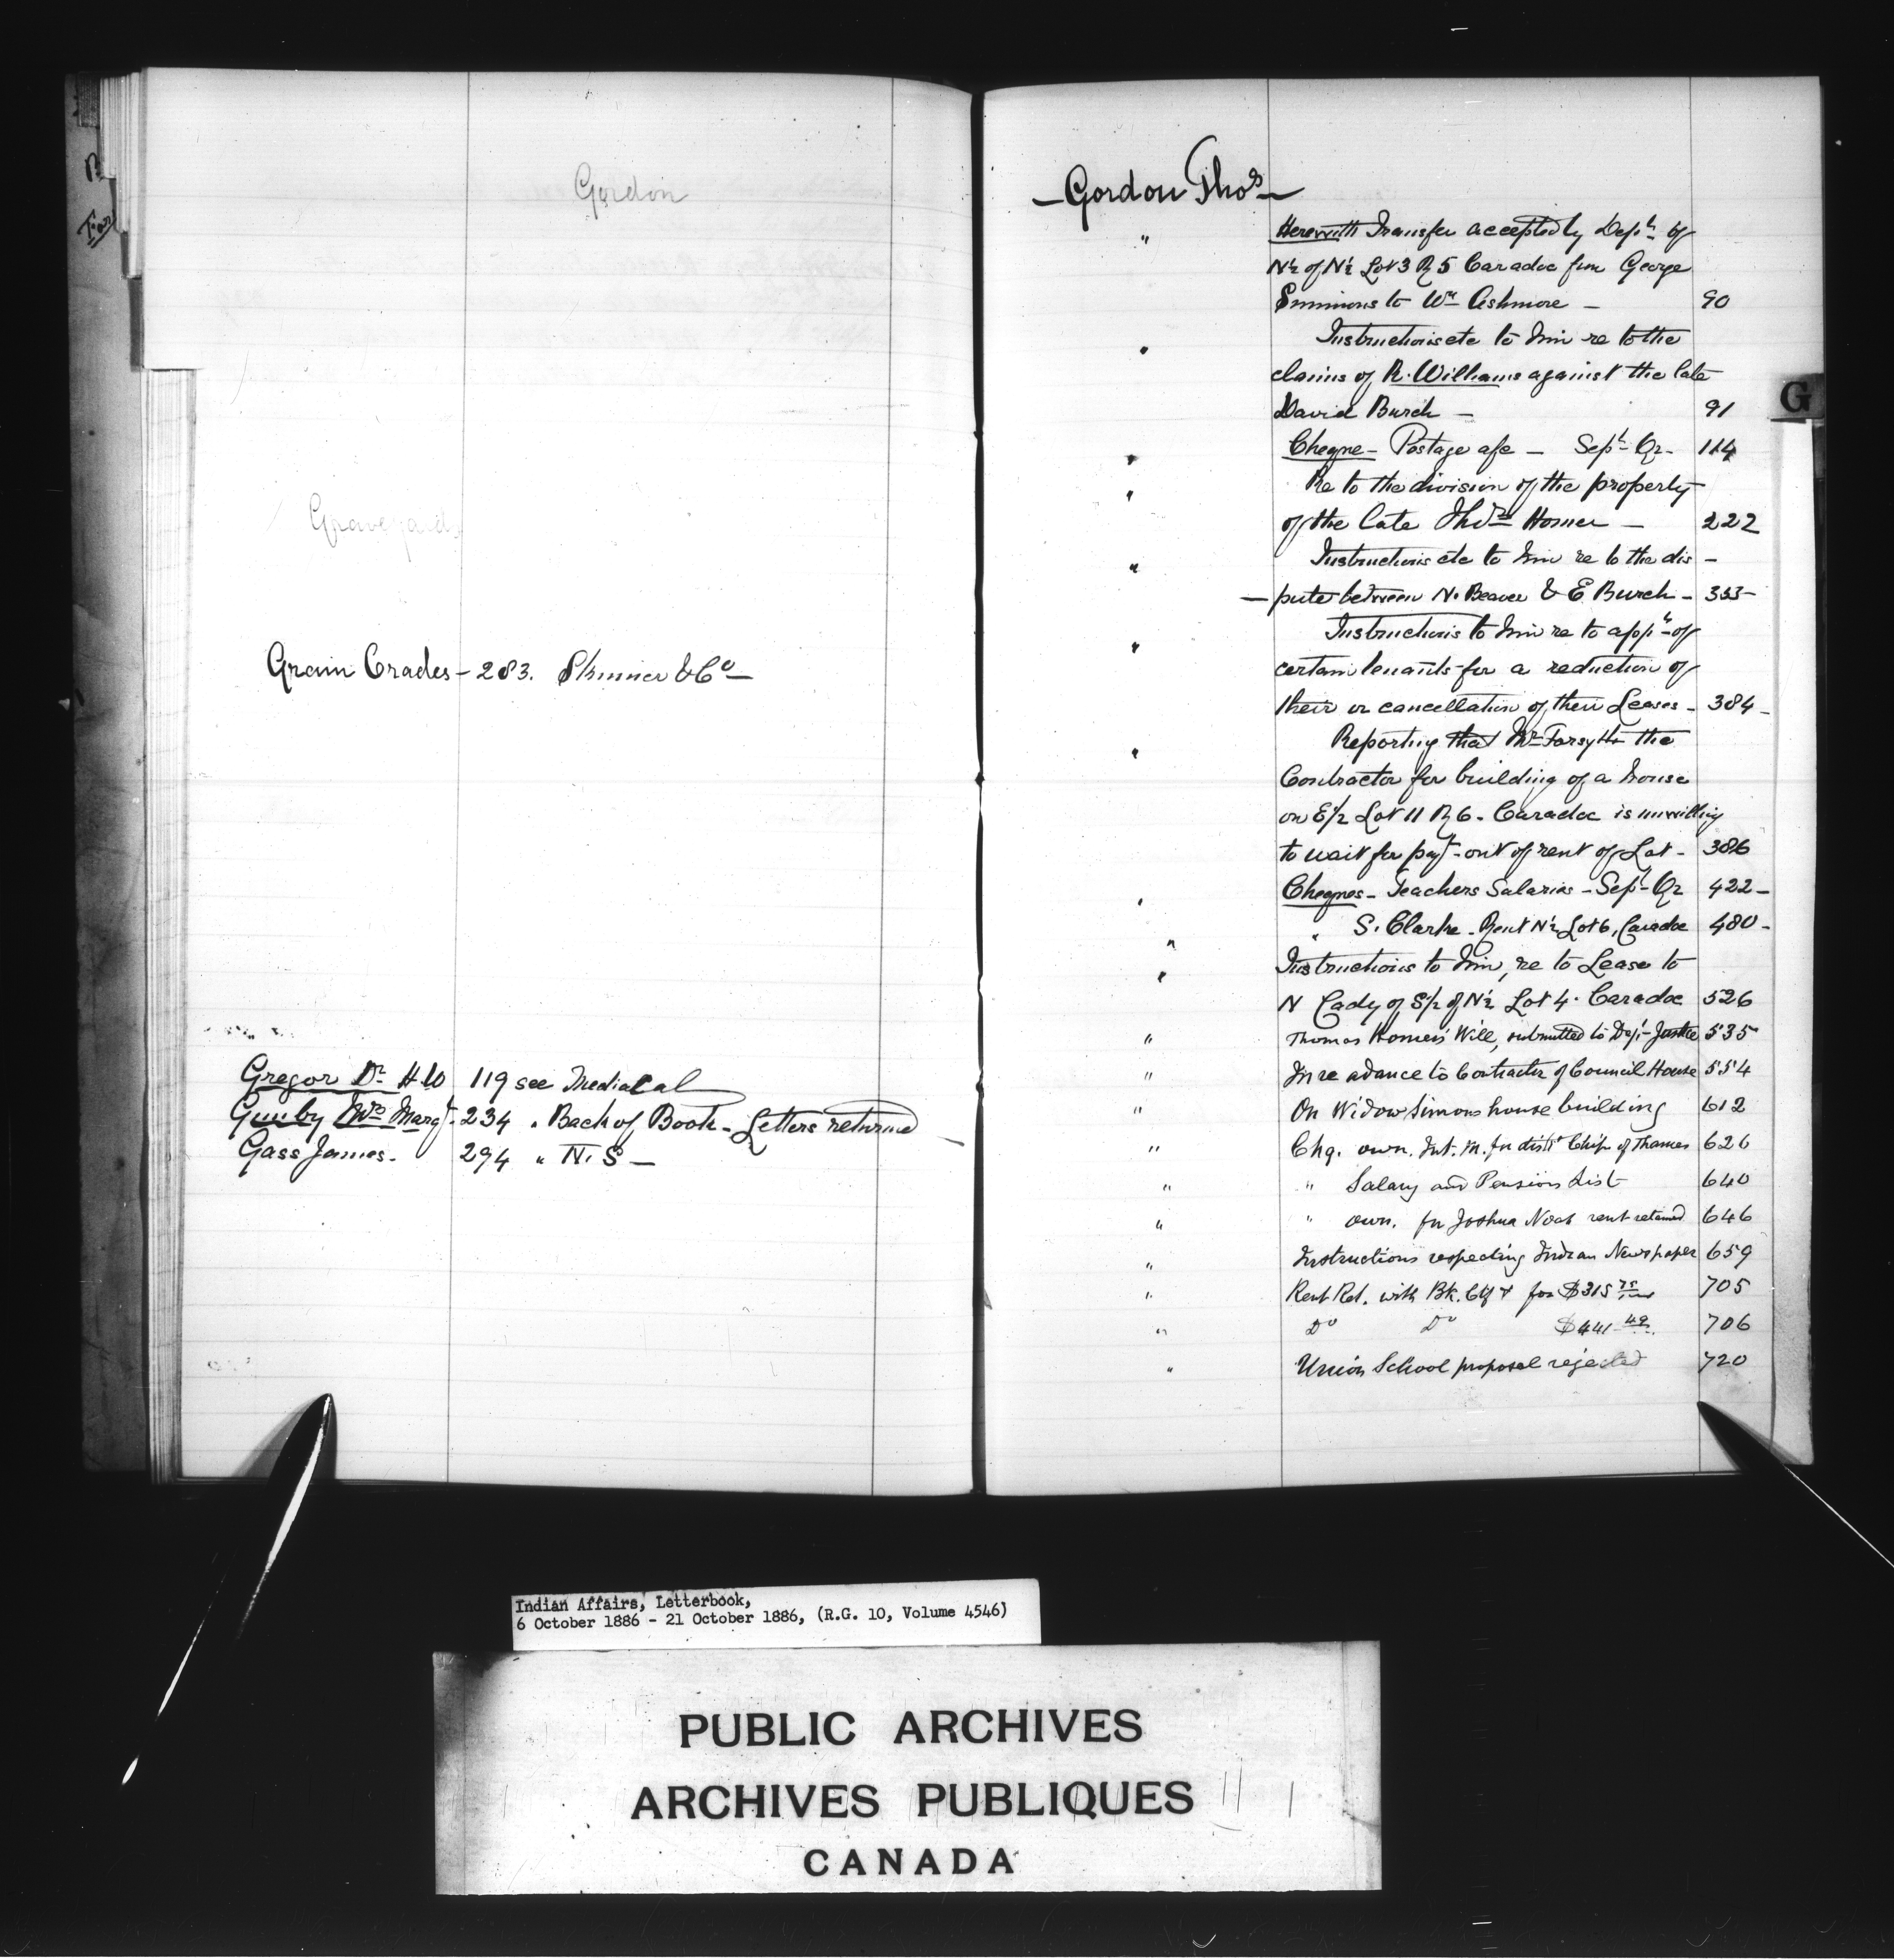 Gordon
Graveyards
Grain Crades - 283. Skinner & Co —
Gregor Dr. H.W 119 see Medical
Gunby Mrs Margt. 234 " Back of Book - Letters returned
Gass James. 294 " N. S —
— Gordon Thos —
" Herewith Transfer accepted by Dept. of
N½ of N½ Lot 3 R 5 Caradoc fm George
Simmons to Wm Ashmore — 90
" Instructions etc to him re to the
claims of R. Williams against the late
David Burch — 91
" Cheque - Postage a/c — Sept. Qr. 114
" Re to the division of the property
of the late Thos. Homer — 222
" Instructions etc to him re to the dis -
— pute between N. Beaver & E. Burch - 333 -
" Instructions to him re to appn. of
certain tenants for a reduction of
their or cancellation of their Leases - 384 -
" Reporting that Mr. Forsyth the
Contractor for building of a house
on E/2 Lot 11 R 6 - Caradoc is unwilling
to wait for payt. out of rent of Lot - 386
" Cheques - Teachers Salaries - Sept. Qr 422 -
" " S. Clarke - Rent N½ Lot 6, Caradoc 480 -
" Instructions to him, re to Lease to
N Cady of S/2 of N½ Lot 4. Caradoc 526
" Thomas Homer's Will, submitted to Dept. Justice 535
" In re adance to Contractor of Council House 554
" On Widow Simons house building 612
" Chq. own. Int. M. for distn Chip. of Thames 626
" " Salary and Pension List 640
" " own. for Joshua Noah rent retained 646
" Instructions respecting Indian Newspaper 659
" Rent Ret. with Bk. Ctf t for $315 75 705
" Do Do $441 49 706
" Union School proposal rejected 720
G
Indian Affairs, Letterbook,
6 October 1886 - 21 October 1886, (R.G. 10, Volume 4546)
PUBLIC ARCHIVES
ARCHIVES PUBLIQUES
CANADA